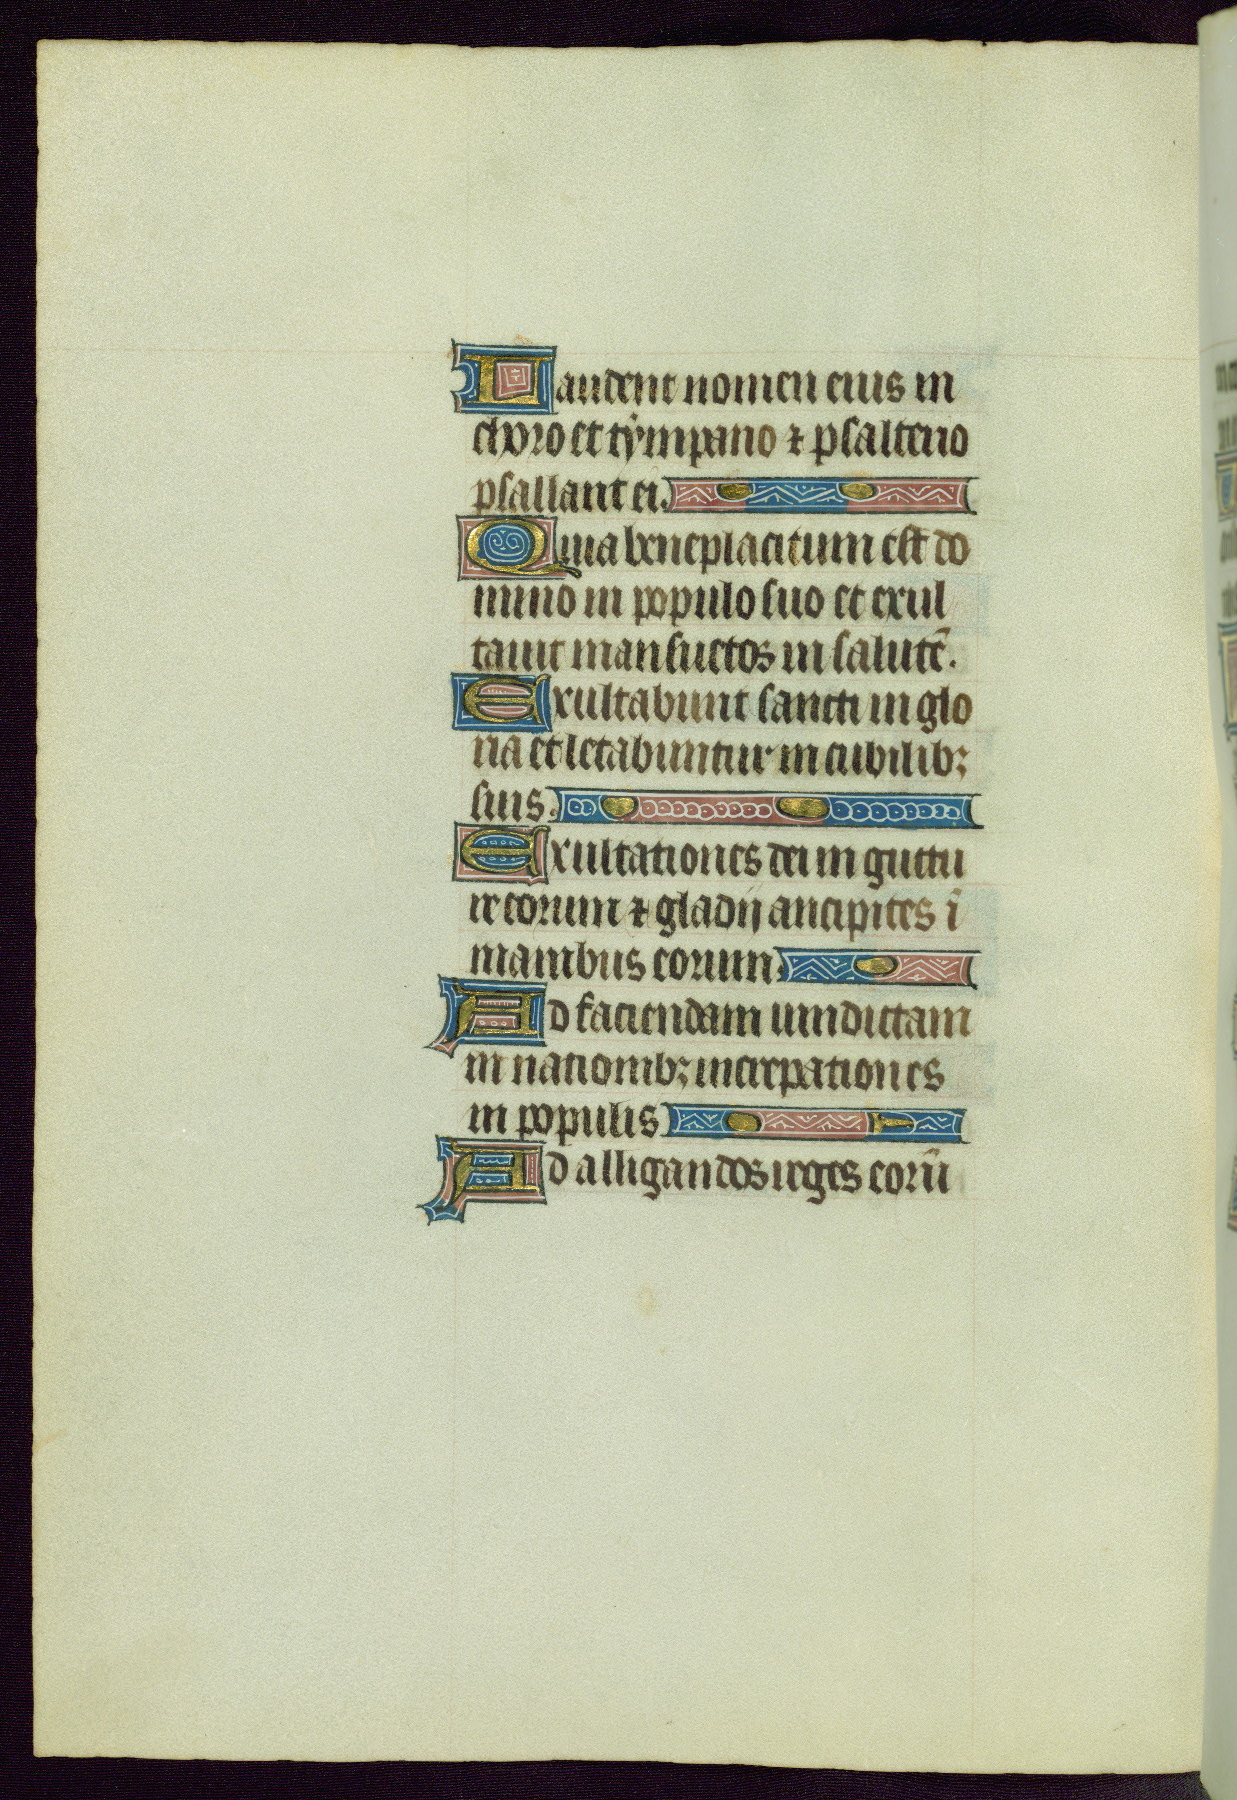 Laudent nomen eius in
choro et tÿmpano ⁊ psalterio
psallant ei.
Quia beneplacitum est do
mino in populo suo et exul
tauit mansuetos in salutē.
Exultabunt sancti in glo
ria et letabuntur in cubilibꝫ
suis.
Exultationes dei in guttu
re eorum ⁊ gladij ancipites ī
manibus eorum.
Ad faciendam uindictam
in nationibꝫ increpationes
in populis
Ad alligandos reges eorū